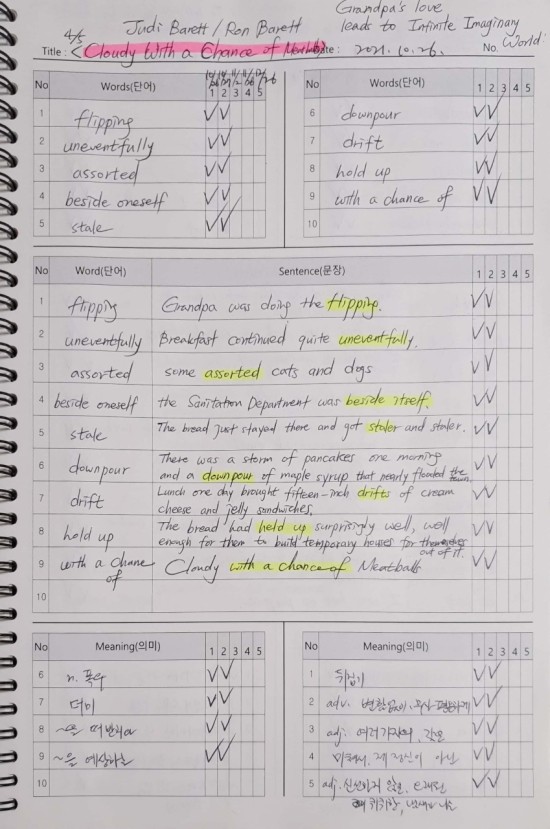 Grandpa's love
4/5 Judi Barett / Ron Barett leads to Infinite Imaginary
World
Title : <Cloudy With a Chance of Meatballs> Date : 2021. 10. 26. No.
No Words(단어) 1 2 3 4 5
1 flipping
2 uneventfully
3 assorted
4 beside oneself
5 stale
No Words(단어) 1 2 3 4 5
6 downpour
7 drift
8 hold up
9 with a chance of
10
No Word(단어) Sentence(문장) 1 2 3 4 5
1 flipping Grandpa was doing the flipping.
2 uneventfully Breakfast continued quite uneventfully.
3 assorted some assorted cats and dogs
4 beside oneself the Sanitation Department was beside itself.
5 stale The bread just stayed there and got staler and staler.
6 downpour There was a storm of pancakes one morning
and a downpour of maple syrup that nearly flooded the town.
7 drift Lunch one day brought fifteen-inch drifts of cream
cheese and jelly sandwiches.
8 hold up The bread had held up surprisingly well, well
enough for them to build temporary houses for themselves
out of it.
9 with a chane of Cloudy with a chance of Meatballs
10
No Meaning(의미) 1 2 3 4 5
6 n. 폭우
7 더미
8 ~을 떠받치다
9 ~을 예상하는
10
No Meaning(의미) 1 2 3 4 5
1 뒤집기
2 adv. 변함없이,
3 adj. 여러가지의, 갖은
4 미쳐서, 제 정신이 아닌
5 adj. 신선하지 않은, 오래된
퀴퀴한, 냄새가 나는